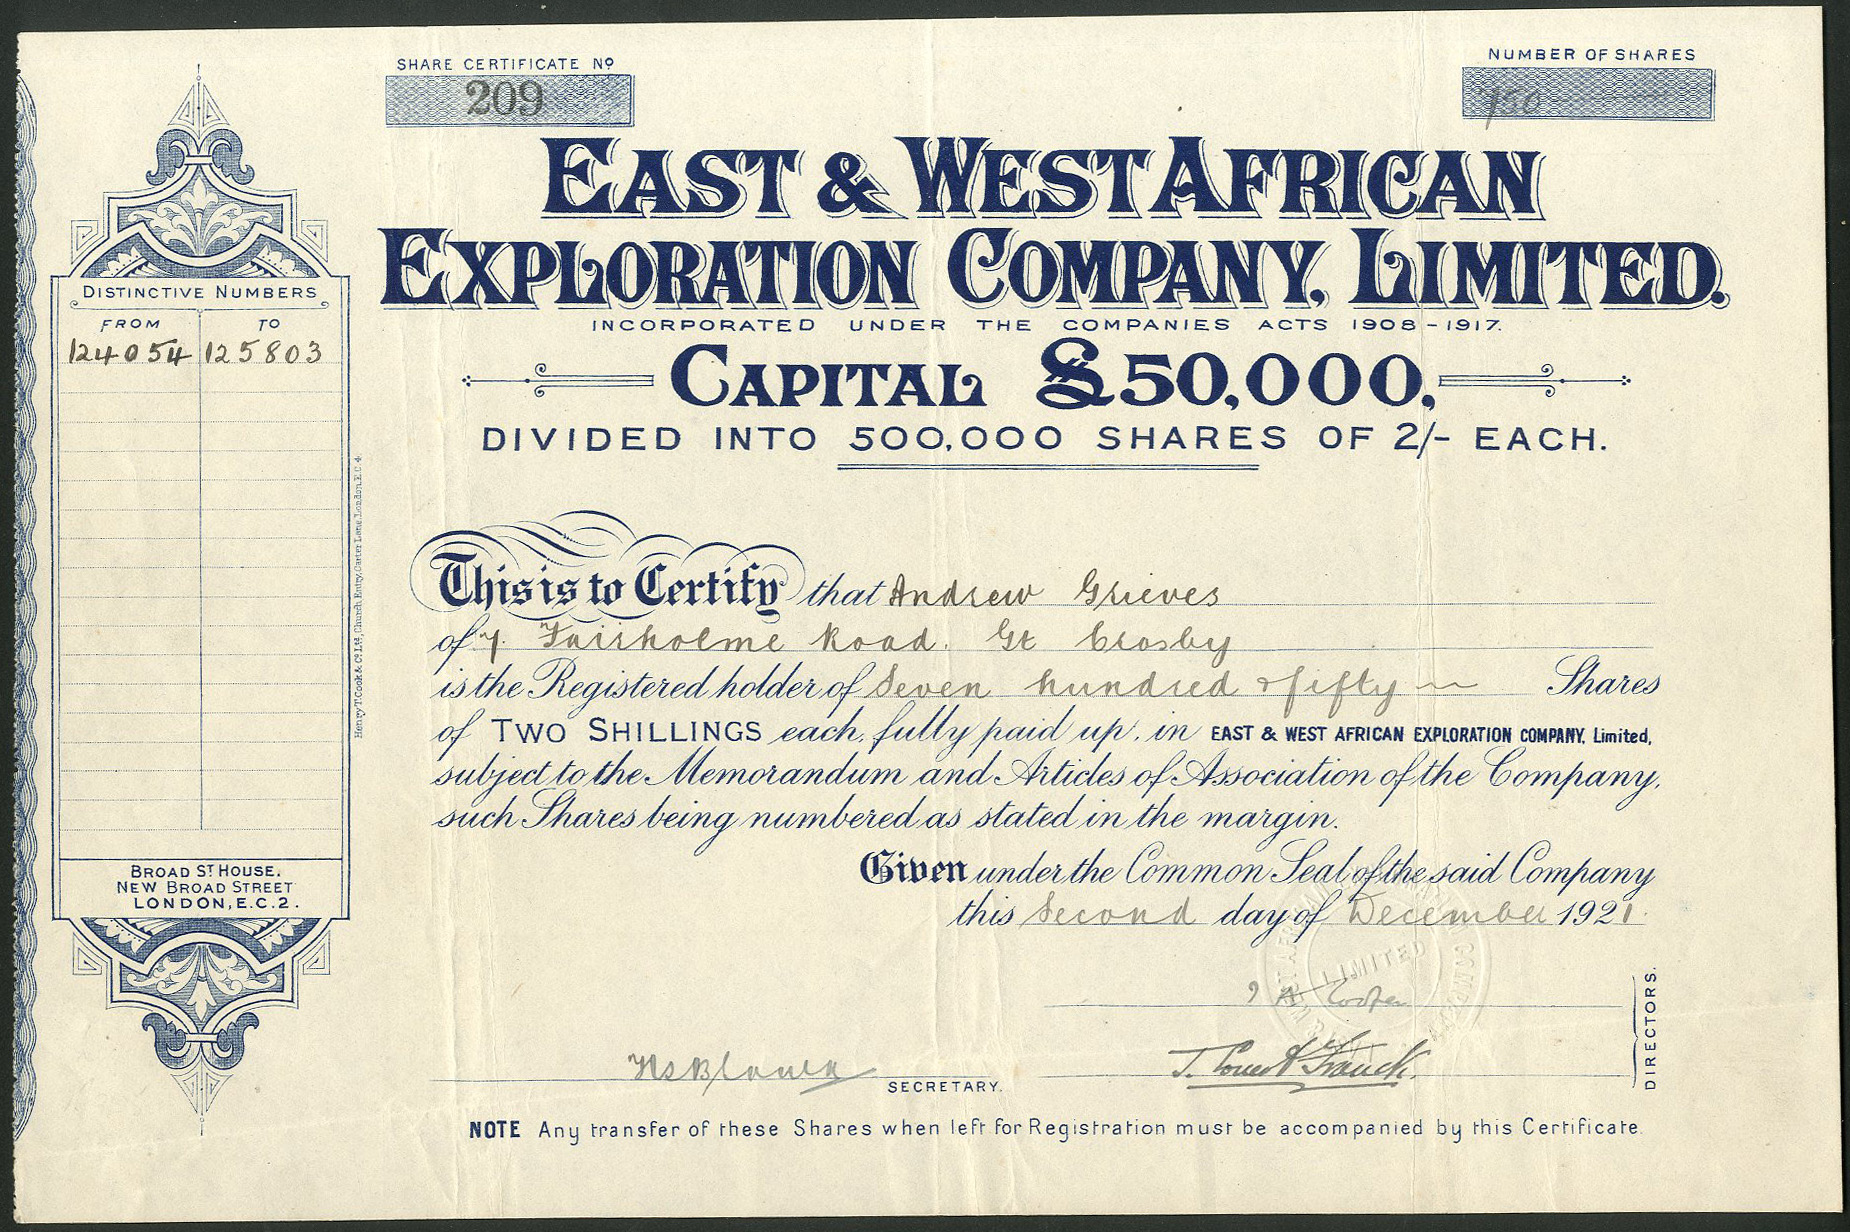 SHARE CERTIFICATE No
209
NUMBER OF SHARES
750
EAST & WEST AFRICAN
EXPLORATION COMPANY, LIMITED.
INCORPORATED UNDER THE COMPANIES ACTS 1908-1917.
CAPITAL £50,000,
DIVIDED INTO 500,000 SHARES OF 2/- EACH.
DISTINCTIVE NUMBERS
FROM TO
124054 125803
Henry T. Cook & Co Ltd, Church Entry, Carter Lane, London. E.C.4.
BROAD ST HOUSE.
NEW BROAD STREET
LONDON, E.C.2.
This is to Certify that Andrew Grieves
of 7. Fairholme Road. Gt Crosby
is the Registered holder of Seven hundred & fifty Shares
of TWO SHILLINGS each, fully paid up, in EAST & WEST AFRICAN EXPLORATION COMPANY, Limited,
subject to the Memorandum and Articles of Association of the Company,
such Shares being numbered as stated in the margin.
Given under the Common Seal of the said Company
this Second day of December 1921.
LIMITED
DIRECTORS.
SECRETARY.
NOTE Any transfer of these Shares when left for Registration must be accompanied by this Certificate.